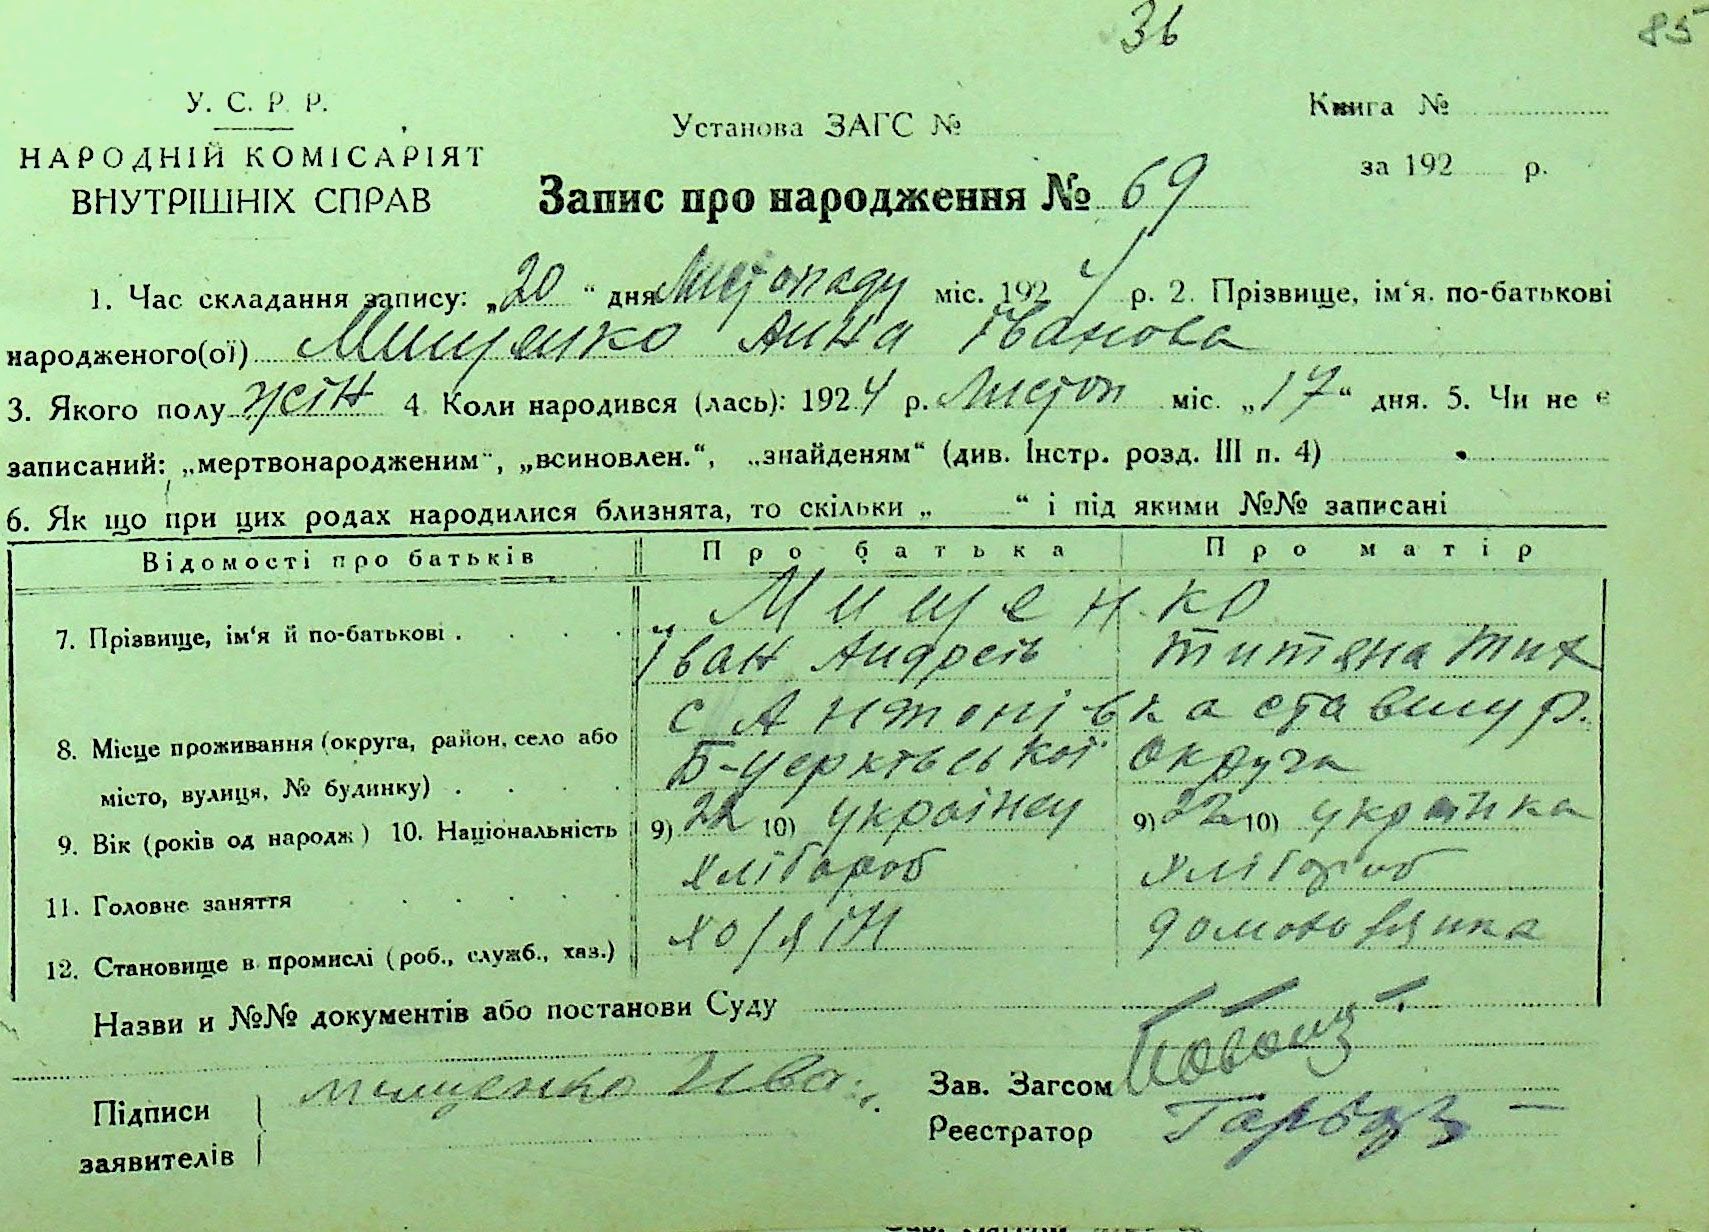 36 85
У. С. Р. Р.
НАРОДНІЙ КОМІСАРІЯТ
ВНУТРІШНІХ СПРАВ
Установа ЗАГС №
Книга №
за 192 р.
Запис про народження № 69
1. Час складання запису: „20“ дня Листопаду міс. 1924 р. 2. Прізвище, ім‘я, по-батькові
народженого(ої) Мищенко Анна Іванова
3. Якого полу жін 4. Коли народився (лась): 1924 р. Листоп міс. „17“ дня. 5. Чи не є
записаний: „мертвонародженим“, „всиновлен.“, „знайденям“ (див. Інстр. розд. III п. 4)
6. Як що при цих родах народилися близнята, то скільки „ “ і під якими №№ записані
Відомості про батьків Про батька Про матір
7. Прізвище, ім‘я й по-батькові . . . . Мищенко
Іван Андреів Титяна Тих
8. Місце проживання (округа, район, село або с Антонівка ставищ р.
місто, вулиця, № будинку) . . . . Б-церктвської Округа
9. Вік (років од народж) 10. Національність 9) 22 10) українец 9) 22 10) українка
11. Головне заняття . . . . хлібороб хлібороб
12. Становище в промислі (роб., служб., хаз.) хозяін домово
Назви и №№ документів або постанови Суду
Підписи
заявителів
мищенко Ива
Зав. Загсом
Реєстратор